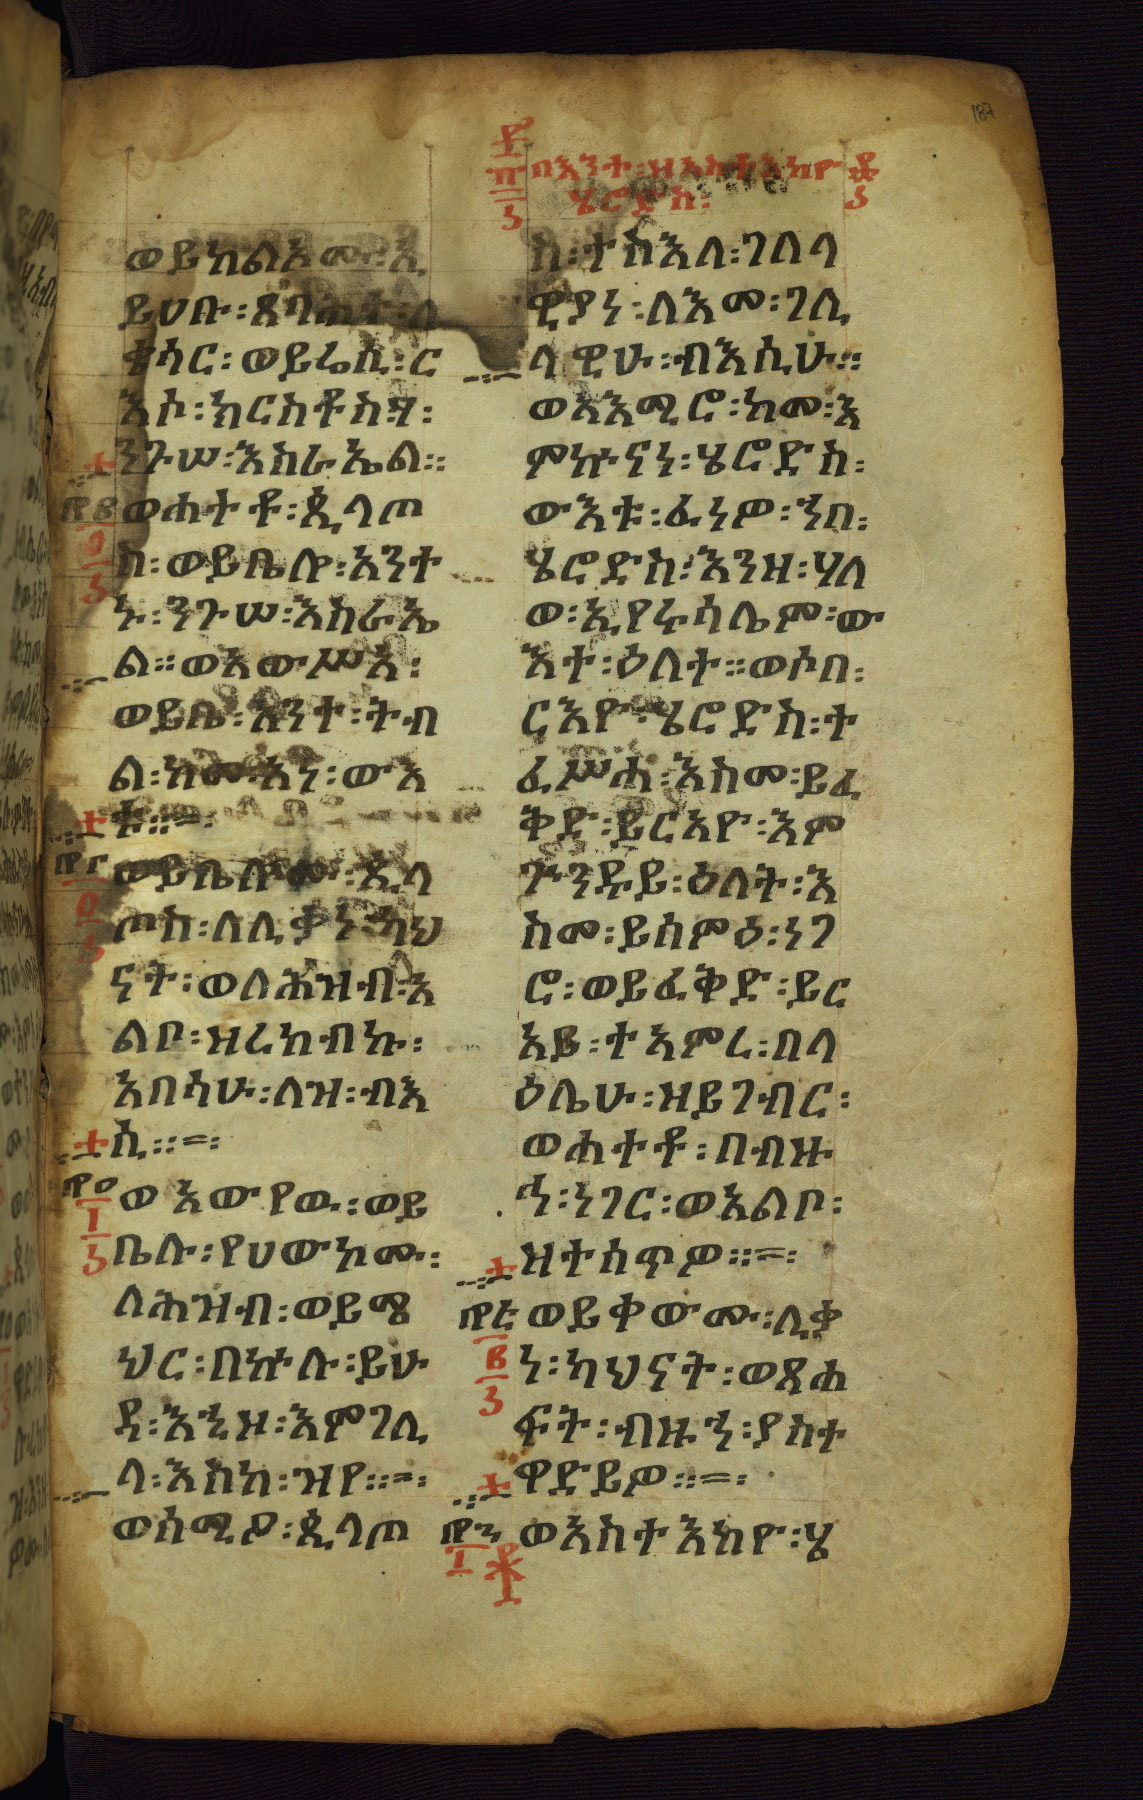 187
በእንተ፡ዝአስተአከዮ
ሄሮድስ፡
ወይከልኦሙ፡ኢ
ይሀቡ፡ጸባሕተ፡ለ
ቄሳር፡ወይሬሲ፡ር
እሶ፡ክርስቶስሃ፡
ንጉሠ፡እስራኤል።
ወሐተቶ፡ጲላጦ
ስ፡ወይቤሎ፡አንተ
ኑ፡ንጉሠ፡እስራኤ
ል።ወአውሥአ፡
ወይቤ፡አንተ፡ትብ
ል፡ከመ፡አነ፡ውእ
ቱ።=፡
ወይቤሎሙ፡ጲላ
ጦስ፡ለሊቃነ፡ካህ
ናት፡ወለሕዝብ፡አ
ልቦ፡ዘረከብኩ፡
አበሳሁ፡ለዝ፡ብእ
ሲ።=፡
ወአውየዉ፡ወይ
ቤሉ፡የሀውኮሙ፡
ለሕዝብ፡ወይሜ
ህር፡በኵሉ፡ይሁ
ዳ፡እኂዞ፡እምገሊ
ላ፡እስከ፡ዝየ።=፡
ወሰሚዖ፡ጲላጦ
ስ፡ተስእለ፡ገሊላ
ዊያነ፡ለእመ፡ገሊ
ላዊሁ፡ብእሲሁ።
ወአእሚሮ፡ከመ፡እ
ምኵናነ፡ሄሮድስ፡
ውእቱ፡ፈነዎ፡ኀበ፡
ሄሮድስ፡እንዘ፡ሃለ
ወ፡ኢየሩሳሌም፡ው
እተ፡ዕለተ።ወሶበ፡
ርእዮ፡ሄሮድስ፡ተ
ፈሥሐ፡እስመ፡ይፈ
ቅድ፡ይርአዮ፡እም
ጕንዱይ፡ዕለት፡እ
ስመ፡ይሰምዕ፡ነገ
ሮ፡ወይፈቅድ፡ይር
አይ፡ተአምረ፡በላ
ዕሌሁ፡ዘይገብር፡
ወሐተቶ፡በብዙ
ኅ፡ነገር፡ወአልቦ፡
ዝተሰጥዎ።=፡
ወይቀውሙ፡ሊቃ
ነ፡ካህናት፡ወጸሐ
ፍት፡ብዙኀ፡ያስተ
ዋድይዎ።=፡
ወአስተአከዮ፡ሄ